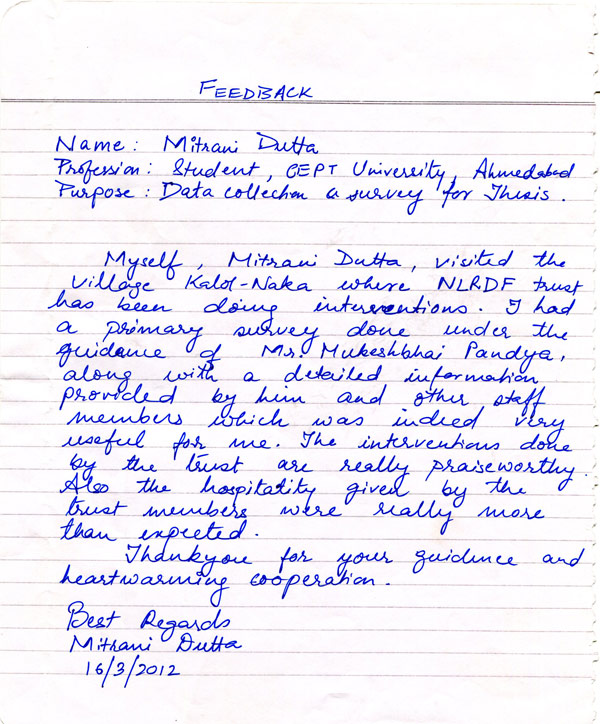 FEEDBACK
Name : Mitrani Dutta
Profession : Student, CEPT University, Ahmedabad
Purpose : Data collection & survey for Thesis.
Myself, Mitrani Dutta, visited the
village Kalol-Naka where NLRDF trust
has been doing interventions. I had
a primary survey done under the
guidance of Mr. Mukeshbhai Pandya,
along with a detailed information
provided by him and other staff
members which was indeed very
useful for me. The interventions done
by the trust are really praiseworthy.
Also the hospitatity given by the
trust members were really more
than expected.
Thankyou for your guidence and
heartwarming cooperation.
Best Regards
Mitrani Dutta
16/3/2012